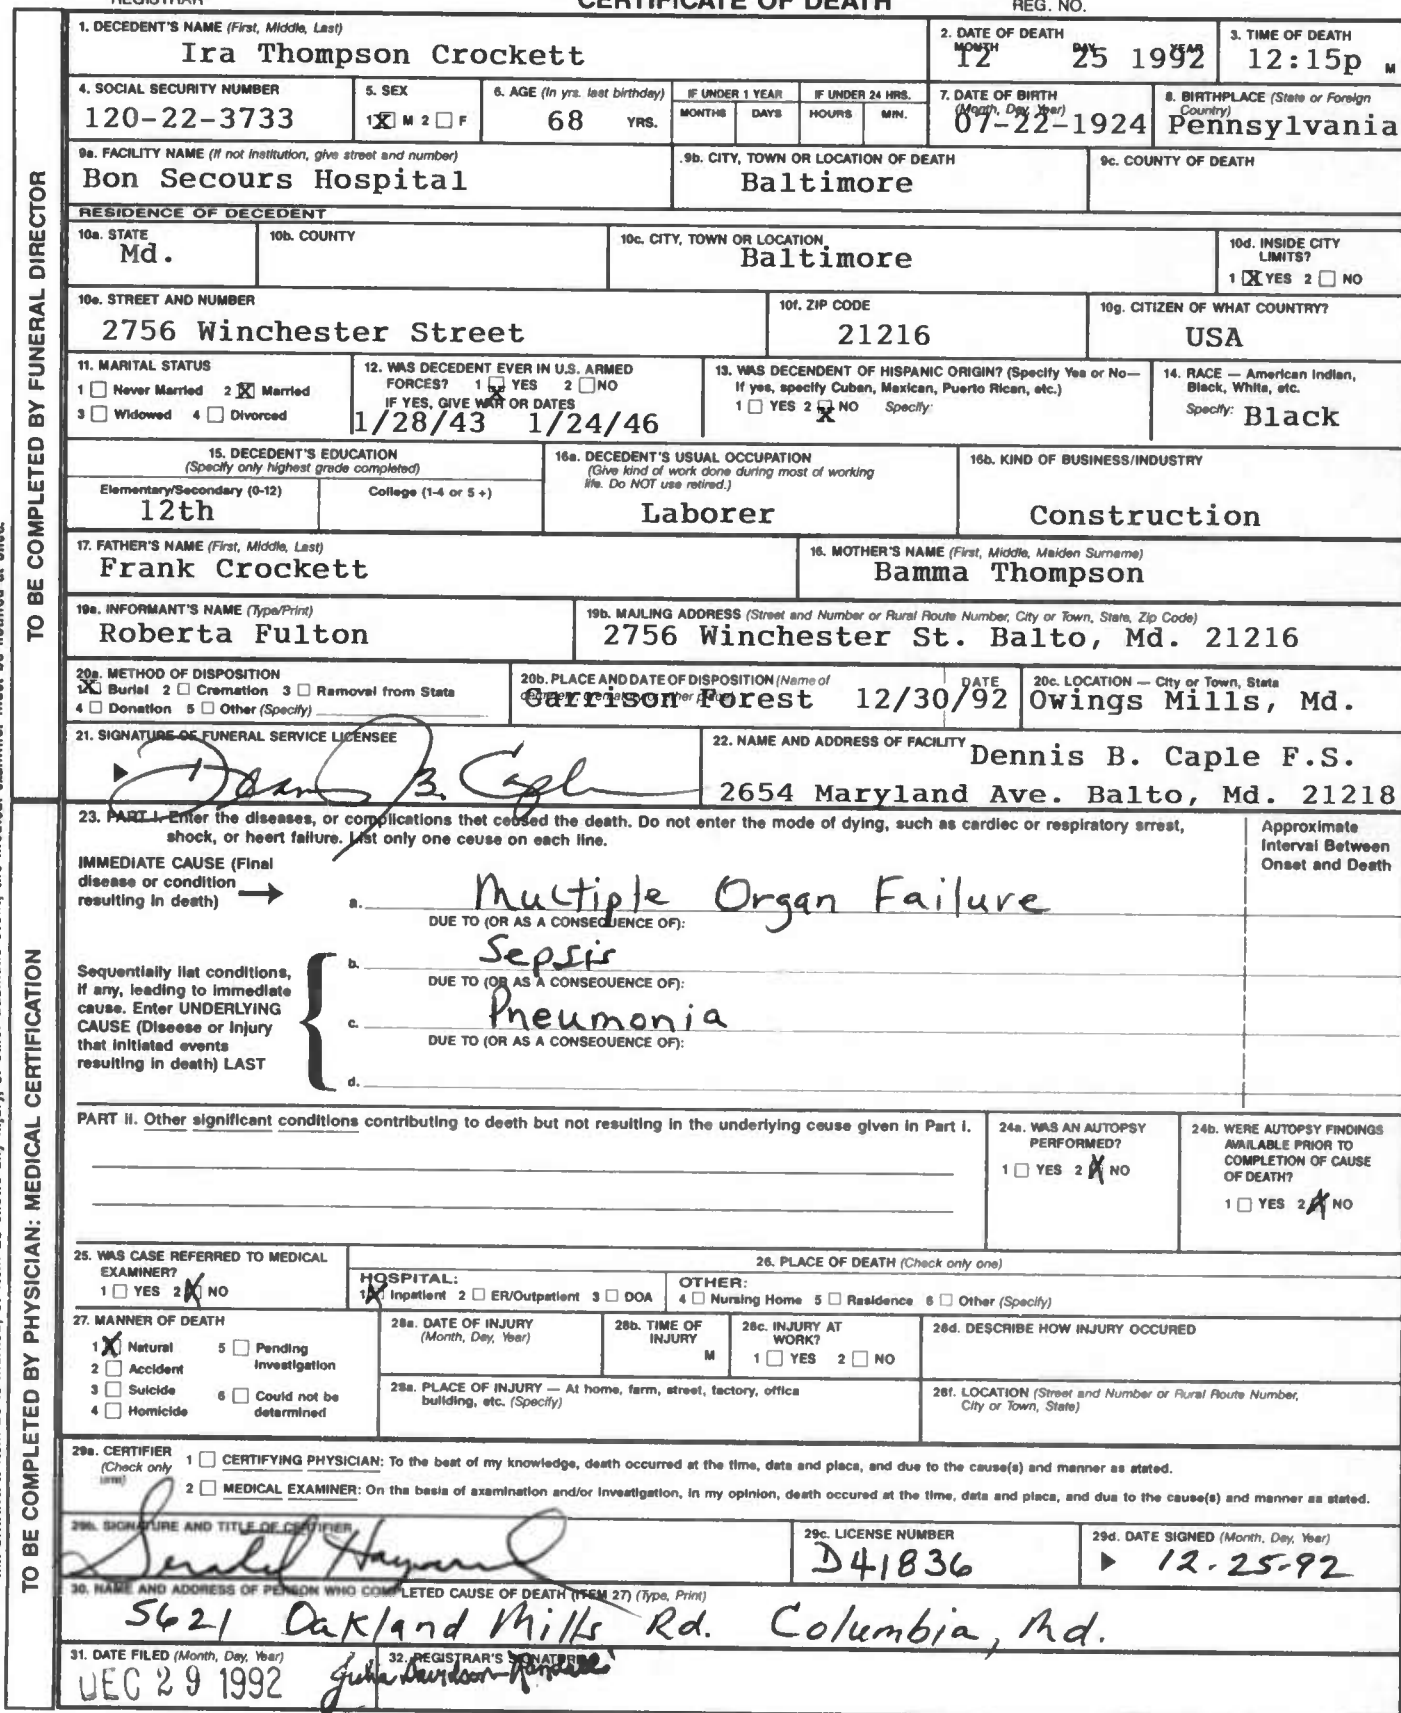 REGISTRAR CERTIFICATE OF DEATH REG. NO.
1. DECEDENT'S NAME (First, Middle, Last)
Ira Thompson Crockett
2. DATE OF DEATH
MONTH DAY YEAR
12 25 1992
3. TIME OF DEATH
12:15p M
4. SOCIAL SECURITY NUMBER
120-22-3733
5. SEX
1 X M 2 ☐ F
6. AGE (In yrs. last birthday)
68 YRS.
IF UNDER 1 YEAR
MONTHS DAYS
IF UNDER 24 HRS.
HOURS MIN.
7. DATE OF BIRTH
(Month, Day, Year)
07-22-1924
8. BIRTHPLACE (State or Foreign Country)
Pennsylvania
9a. FACILITY NAME (If not institution, give street and number)
Bon Secours Hospital
9b. CITY, TOWN OR LOCATION OF DEATH
Baltimore
9c. COUNTY OF DEATH
RESIDENCE OF DECEDENT
10a. STATE
Md.
10b. COUNTY
10c. CITY, TOWN OR LOCATION
Baltimore
10d. INSIDE CITY
LIMITS?
1 X YES 2 ☐ NO
10e. STREET AND NUMBER
2756 Winchester Street
10f. ZIP CODE
21216
10g. CITIZEN OF WHAT COUNTRY?
USA
11. MARITAL STATUS
1 ☐ Never Married 2 X Married
3 ☐ Widowed 4 ☐ Divorced
12. WAS DECEDENT EVER IN U.S. ARMED
FORCES? 1 X YES 2 ☐ NO
IF YES, GIVE WAR OR DATES
1/28/43 1/24/46
13. WAS DECENDENT OF HISPANIC ORIGIN? (Specify Yes or No—
If yes, specify Cuban, Mexican, Puerto Rican, etc.)
1 ☐ YES 2 X NO Specify:
14. RACE — American Indian,
Black, White, etc.
Specify: Black
15. DECEDENT'S EDUCATION
(Specify only highest grade completed)
Elementary/Secondary (0-12) College (1-4 or 5 +)
12th
16a. DECEDENT'S USUAL OCCUPATION
(Give kind of work done during most of working
life. Do NOT use retired.)
Laborer
16b. KIND OF BUSINESS/INDUSTRY
Construction
17. FATHER'S NAME (First, Middle, Last)
Frank Crockett
18. MOTHER'S NAME (First, Middle, Maiden Surname)
Bamma Thompson
19a. INFORMANT'S NAME (Type/Print)
Roberta Fulton
19b. MAILING ADDRESS (Street and Number or Rural Route Number, City or Town, State, Zip Code)
2756 Winchester St. Balto, Md. 21216
20a. METHOD OF DISPOSITION
1 X Burial 2 ☐ Cremation 3 ☐ Removal from State
4 ☐ Donation 5 ☐ Other (Specify)
20b. PLACE AND DATE OF DISPOSITION (Name of
cemetery, crematory or other place) DATE
Garrison Forest 12/30/92
20c. LOCATION — City or Town, State
Owings Mills, Md.
21. SIGNATURE OF FUNERAL SERVICE LICENSEE
22. NAME AND ADDRESS OF FACILITY
Dennis B. Caple F.S.
2654 Maryland Ave. Balto, Md. 21218
TO BE COMPLETED BY FUNERAL DIRECTOR
23. PART I. Enter the diseases, or complications that caused the death. Do not enter the mode of dying, such as cardiac or respiratory arrest,
shock, or heart failure. List only one cause on each line.
Approximate
Interval Between
Onset and Death
IMMEDIATE CAUSE (Final
disease or condition
resulting in death)
a. Multiple Organ Failure
DUE TO (OR AS A CONSEQUENCE OF):
Sequentially list conditions,
if any, leading to immediate
cause. Enter UNDERLYING
CAUSE (Disease or injury
that initiated events
resulting in death) LAST
b. Sepsis
DUE TO (OR AS A CONSEQUENCE OF):
c. Pneumonia
DUE TO (OR AS A CONSEQUENCE OF):
d.
PART II. Other significant conditions contributing to death but not resulting in the underlying cause given in Part I.
24a. WAS AN AUTOPSY
PERFORMED?
1 ☐ YES 2 X NO
24b. WERE AUTOPSY FINDINGS
AVAILABLE PRIOR TO
COMPLETION OF CAUSE
OF DEATH?
1 ☐ YES 2 X NO
25. WAS CASE REFERRED TO MEDICAL
EXAMINER?
1 ☐ YES 2 X NO
26. PLACE OF DEATH (Check only one)
HOSPITAL:
1 X Inpatient 2 ☐ ER/Outpatient 3 ☐ DOA
OTHER:
4 ☐ Nursing Home 5 ☐ Residence 6 ☐ Other (Specify)
27. MANNER OF DEATH
1 X Natural 5 ☐ Pending
2 ☐ Accident Investigation
3 ☐ Suicide 6 ☐ Could not be
4 ☐ Homicide determined
28a. DATE OF INJURY
(Month, Day, Year)
28b. TIME OF
INJURY
M
28c. INJURY AT
WORK?
1 ☐ YES 2 ☐ NO
28d. DESCRIBE HOW INJURY OCCURED
28e. PLACE OF INJURY — At home, farm, street, factory, office
building, etc. (Specify)
28f. LOCATION (Street and Number or Rural Route Number,
City or Town, State)
29a. CERTIFIER
(Check only
one)
1 ☐ CERTIFYING PHYSICIAN: To the best of my knowledge, death occurred at the time, date and place, and due to the cause(s) and manner as stated.
2 ☐ MEDICAL EXAMINER: On the basis of examination and/or investigation, in my opinion, death occured at the time, date and place, and due to the cause(s) and manner as stated.
29b. SIGNATURE AND TITLE OF CERTIFIER
29c. LICENSE NUMBER
D41836
29d. DATE SIGNED (Month, Day, Year)
12-25-92
30. NAME AND ADDRESS OF PERSON WHO COMPLETED CAUSE OF DEATH (ITEM 27) (Type, Print)
5621 Oakland Mills Rd. Columbia, Md.
31. DATE FILED (Month, Day, Year)
DEC 29 1992
32. REGISTRAR'S SIGNATURE
Julia Davidson-Randall
TO BE COMPLETED BY PHYSICIAN: MEDICAL CERTIFICATION